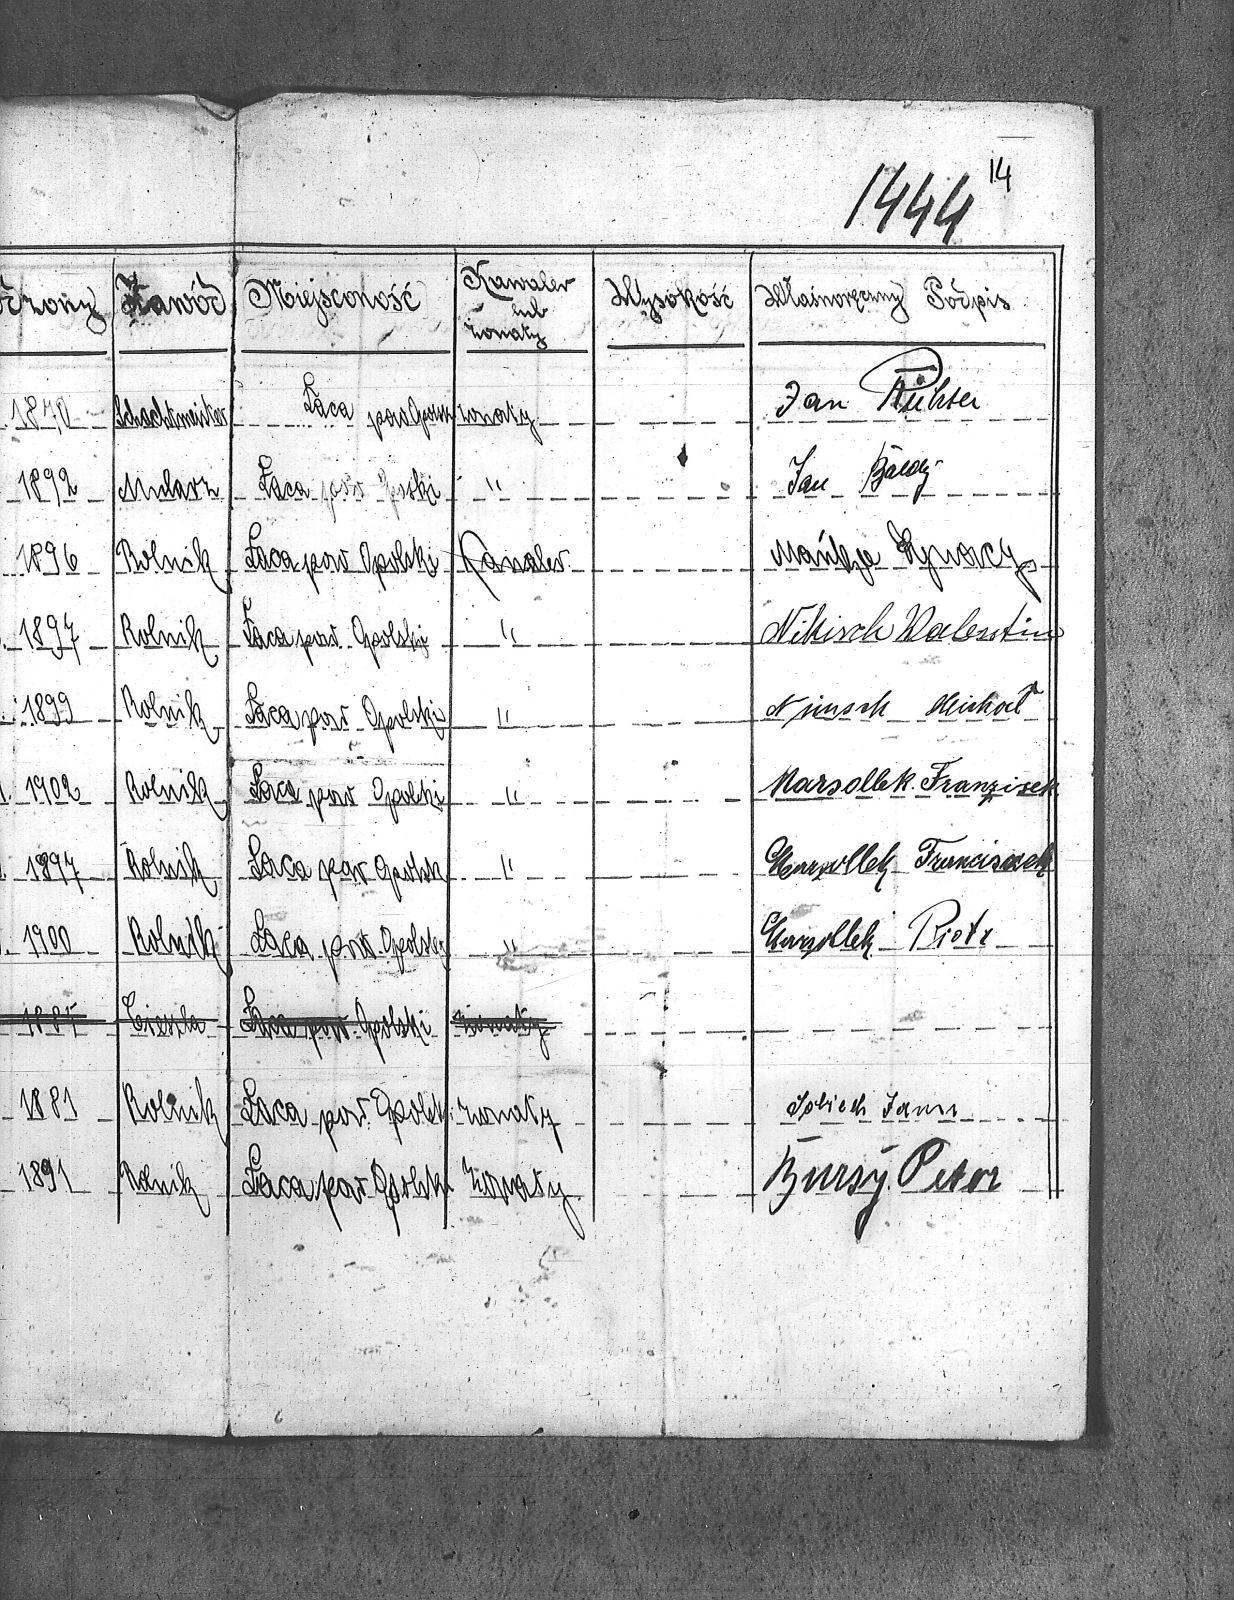 14
1444
Zawód Miejscowość Kawaler lub żonaty Wysokość Własnoręczny Podpis
1870 Schachtmeister Łąca żonaty Jan Richter
1892 Mularz Łąca pow " Jan
1896 Rolnik Łąca pow Opolski Kawaler
1897 Rolnik Łąca pow. Opolski " Nikisch Valentin
1899 Rolnik Łąca pow Opolski "
1902 Rolnik Łąca pow Opolski " Marsollek Franzisek
1897 Rolnik Łąca pow Opolsk " Marsollek Franciszek
1900 Rolnik Łąca pow. Opolski " Marsollek Piotr
Cieszla Łąca pow. Opolski żonaty
1881 Rolnik Łąca pow. Opolsk. żonaty
1891 Rolnik Łąca pow Opolski żonaty Bursy Peter